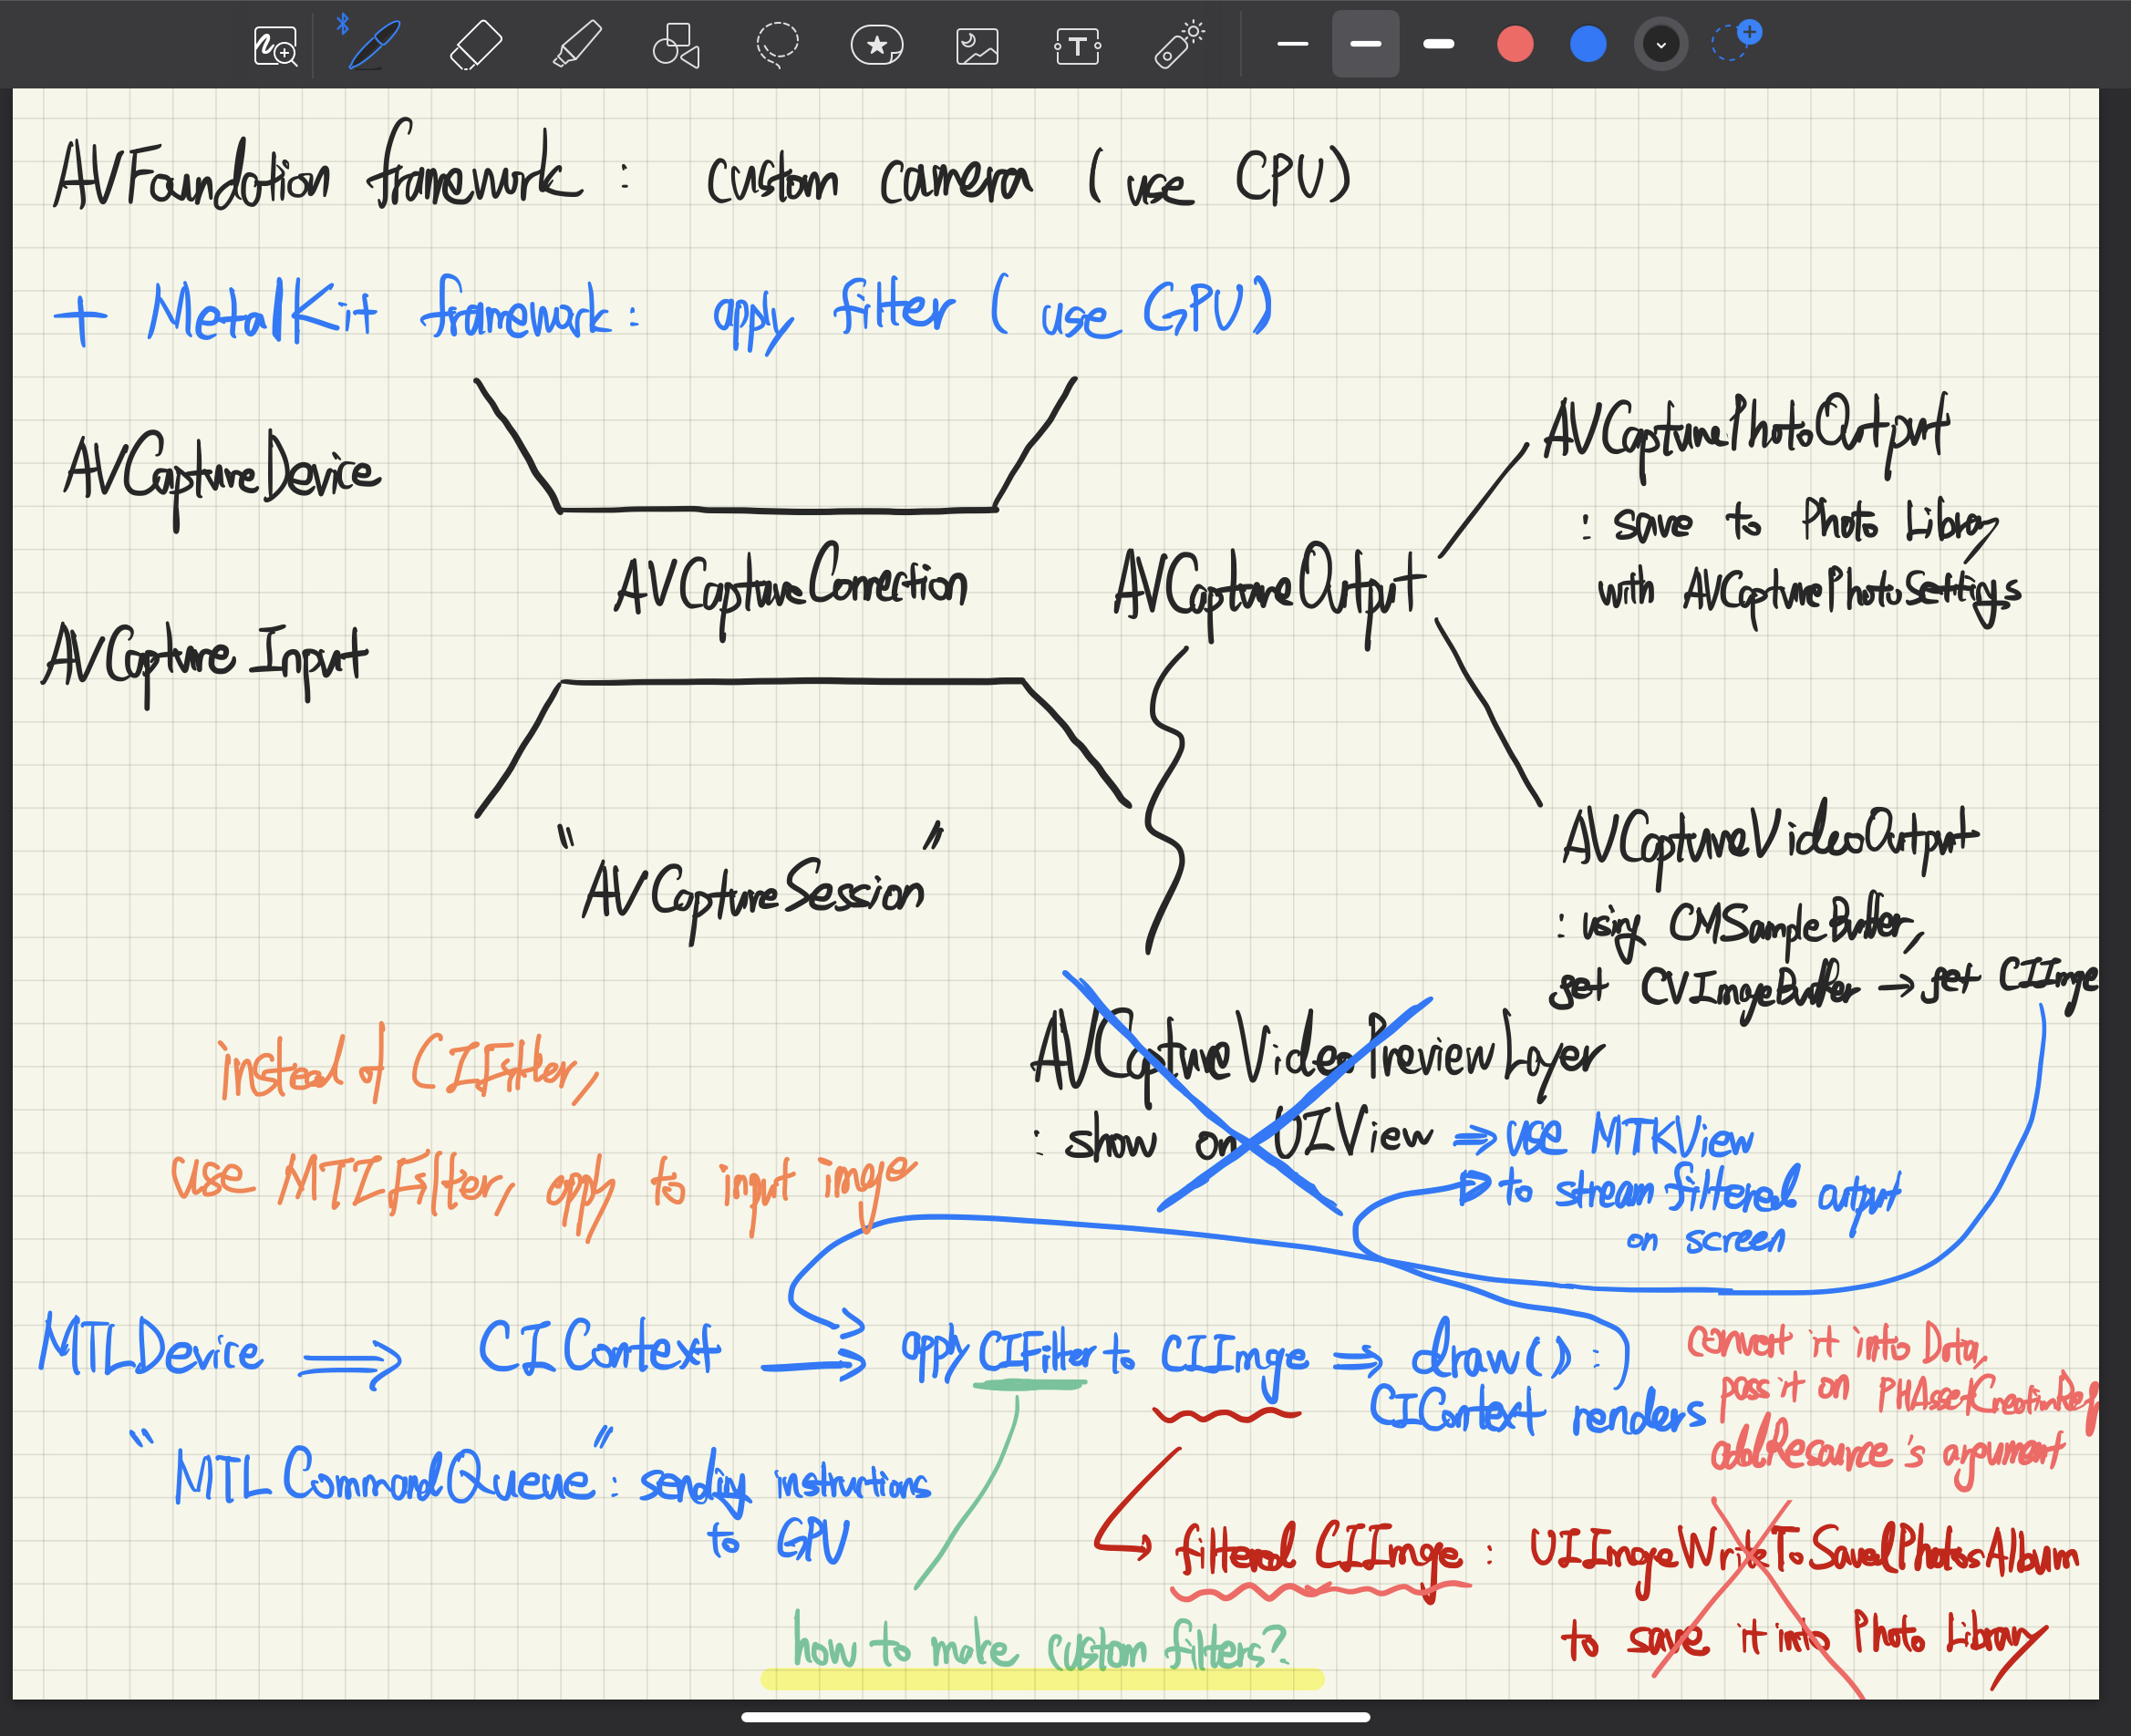 AVFoundation framework : custom camera (use CPU)
+ MetalKit framework : apply filter (use GPU)
AVCaptureDevice
AVCapture Input
AVCaptureConnection
"AVCaptureSession"
AVCaptureOutput
AVCapturePhotoOutput
: save to Photo Library
with AVCapturePhotoSettings
AVCaptureVideoOutput
: using CMSampleBuffer,
get CVImageBuffer → get CIImage
AVCaptureVideoPreviewLayer
: show on UIView ⇒ use MTKView
⇒ to stream filtered output
on screen
instead of CIFilter,
use MTLFilter, apply to input image
MTLDevice ⇒ CIContext ⇒ apply CIFilter to CIImage ⇒ draw() :
CIContext renders
"MTLCommandQueue" : sending instructions
to GPU
convert it into Data,
pass it on
addResource's argument
→ filtered CIImage : UIImageWriteToSavedPhotosAlbum
to save it into Photo Library
how to make custom filters?